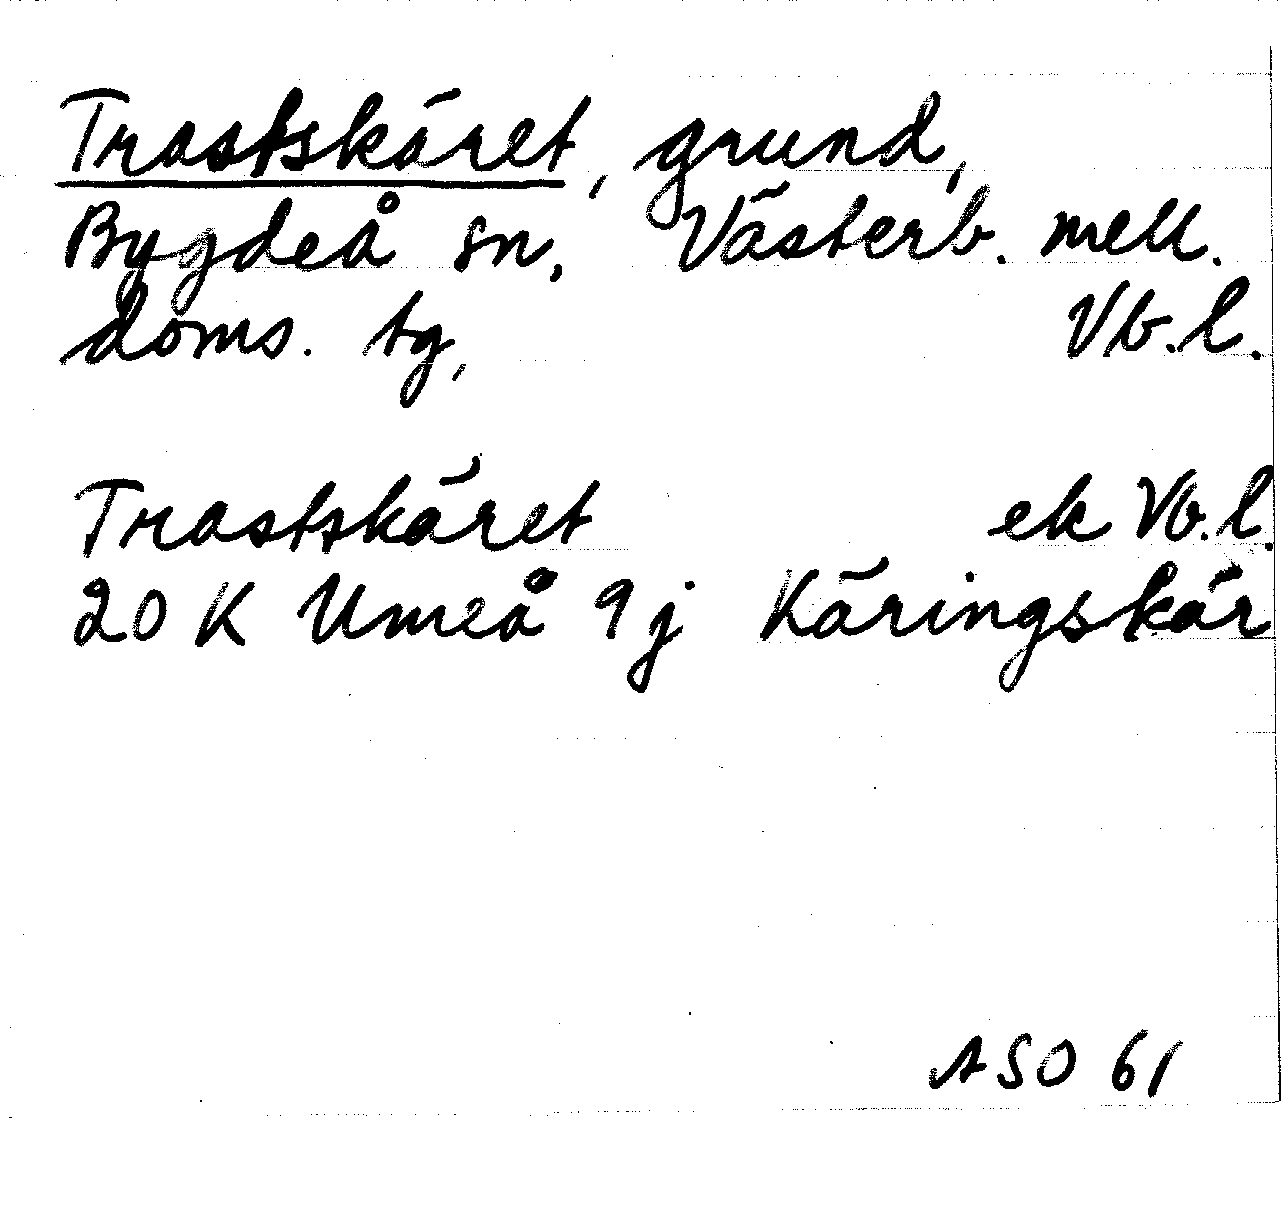 Trastskäret, grund,
Bygdeå sn, Västerb. mell.
doms. tg, Vb.l.
Trastskäret ek Vb.l.
20 K Umeå 9j Käringskär
ASO 61